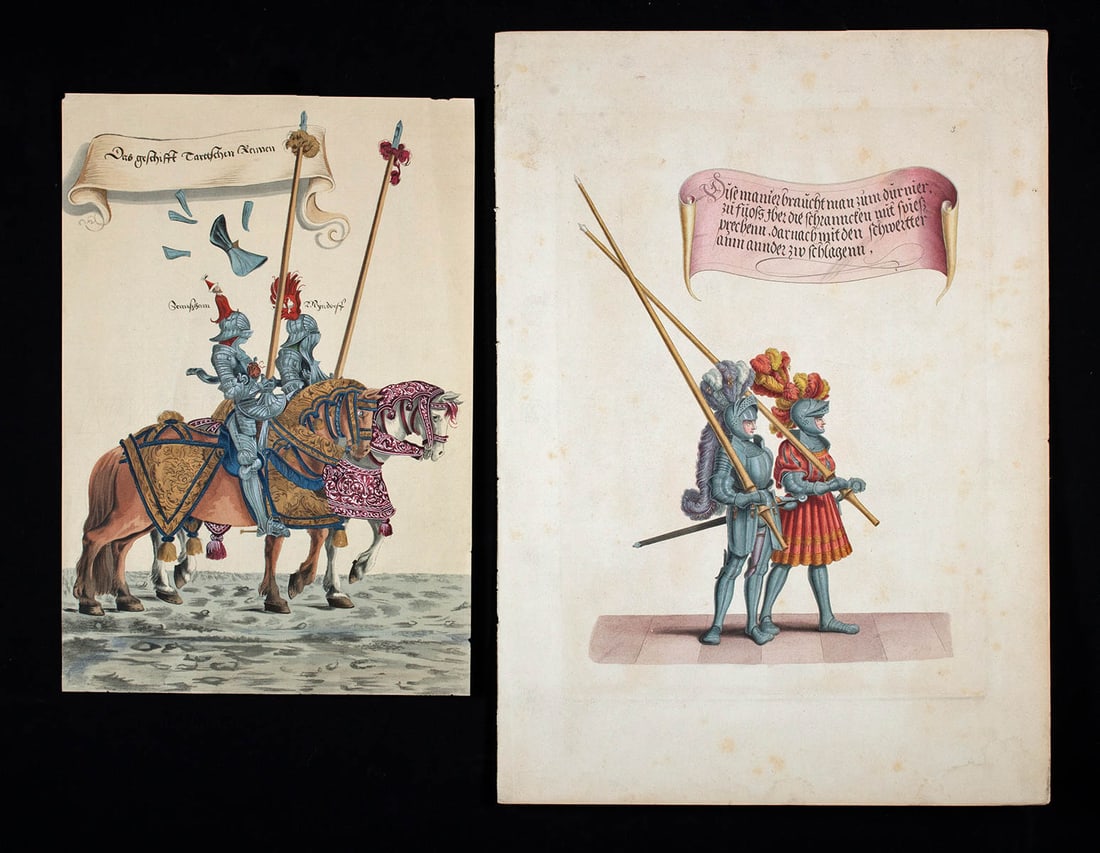 Das geschifft Tartschen Rennen
Dise manier braucht man zum durnier.
zu fuoss vber die schranncken mit spiess
prechenn. darnach mit den schwertter
ainn annder zw schlagenn.
3